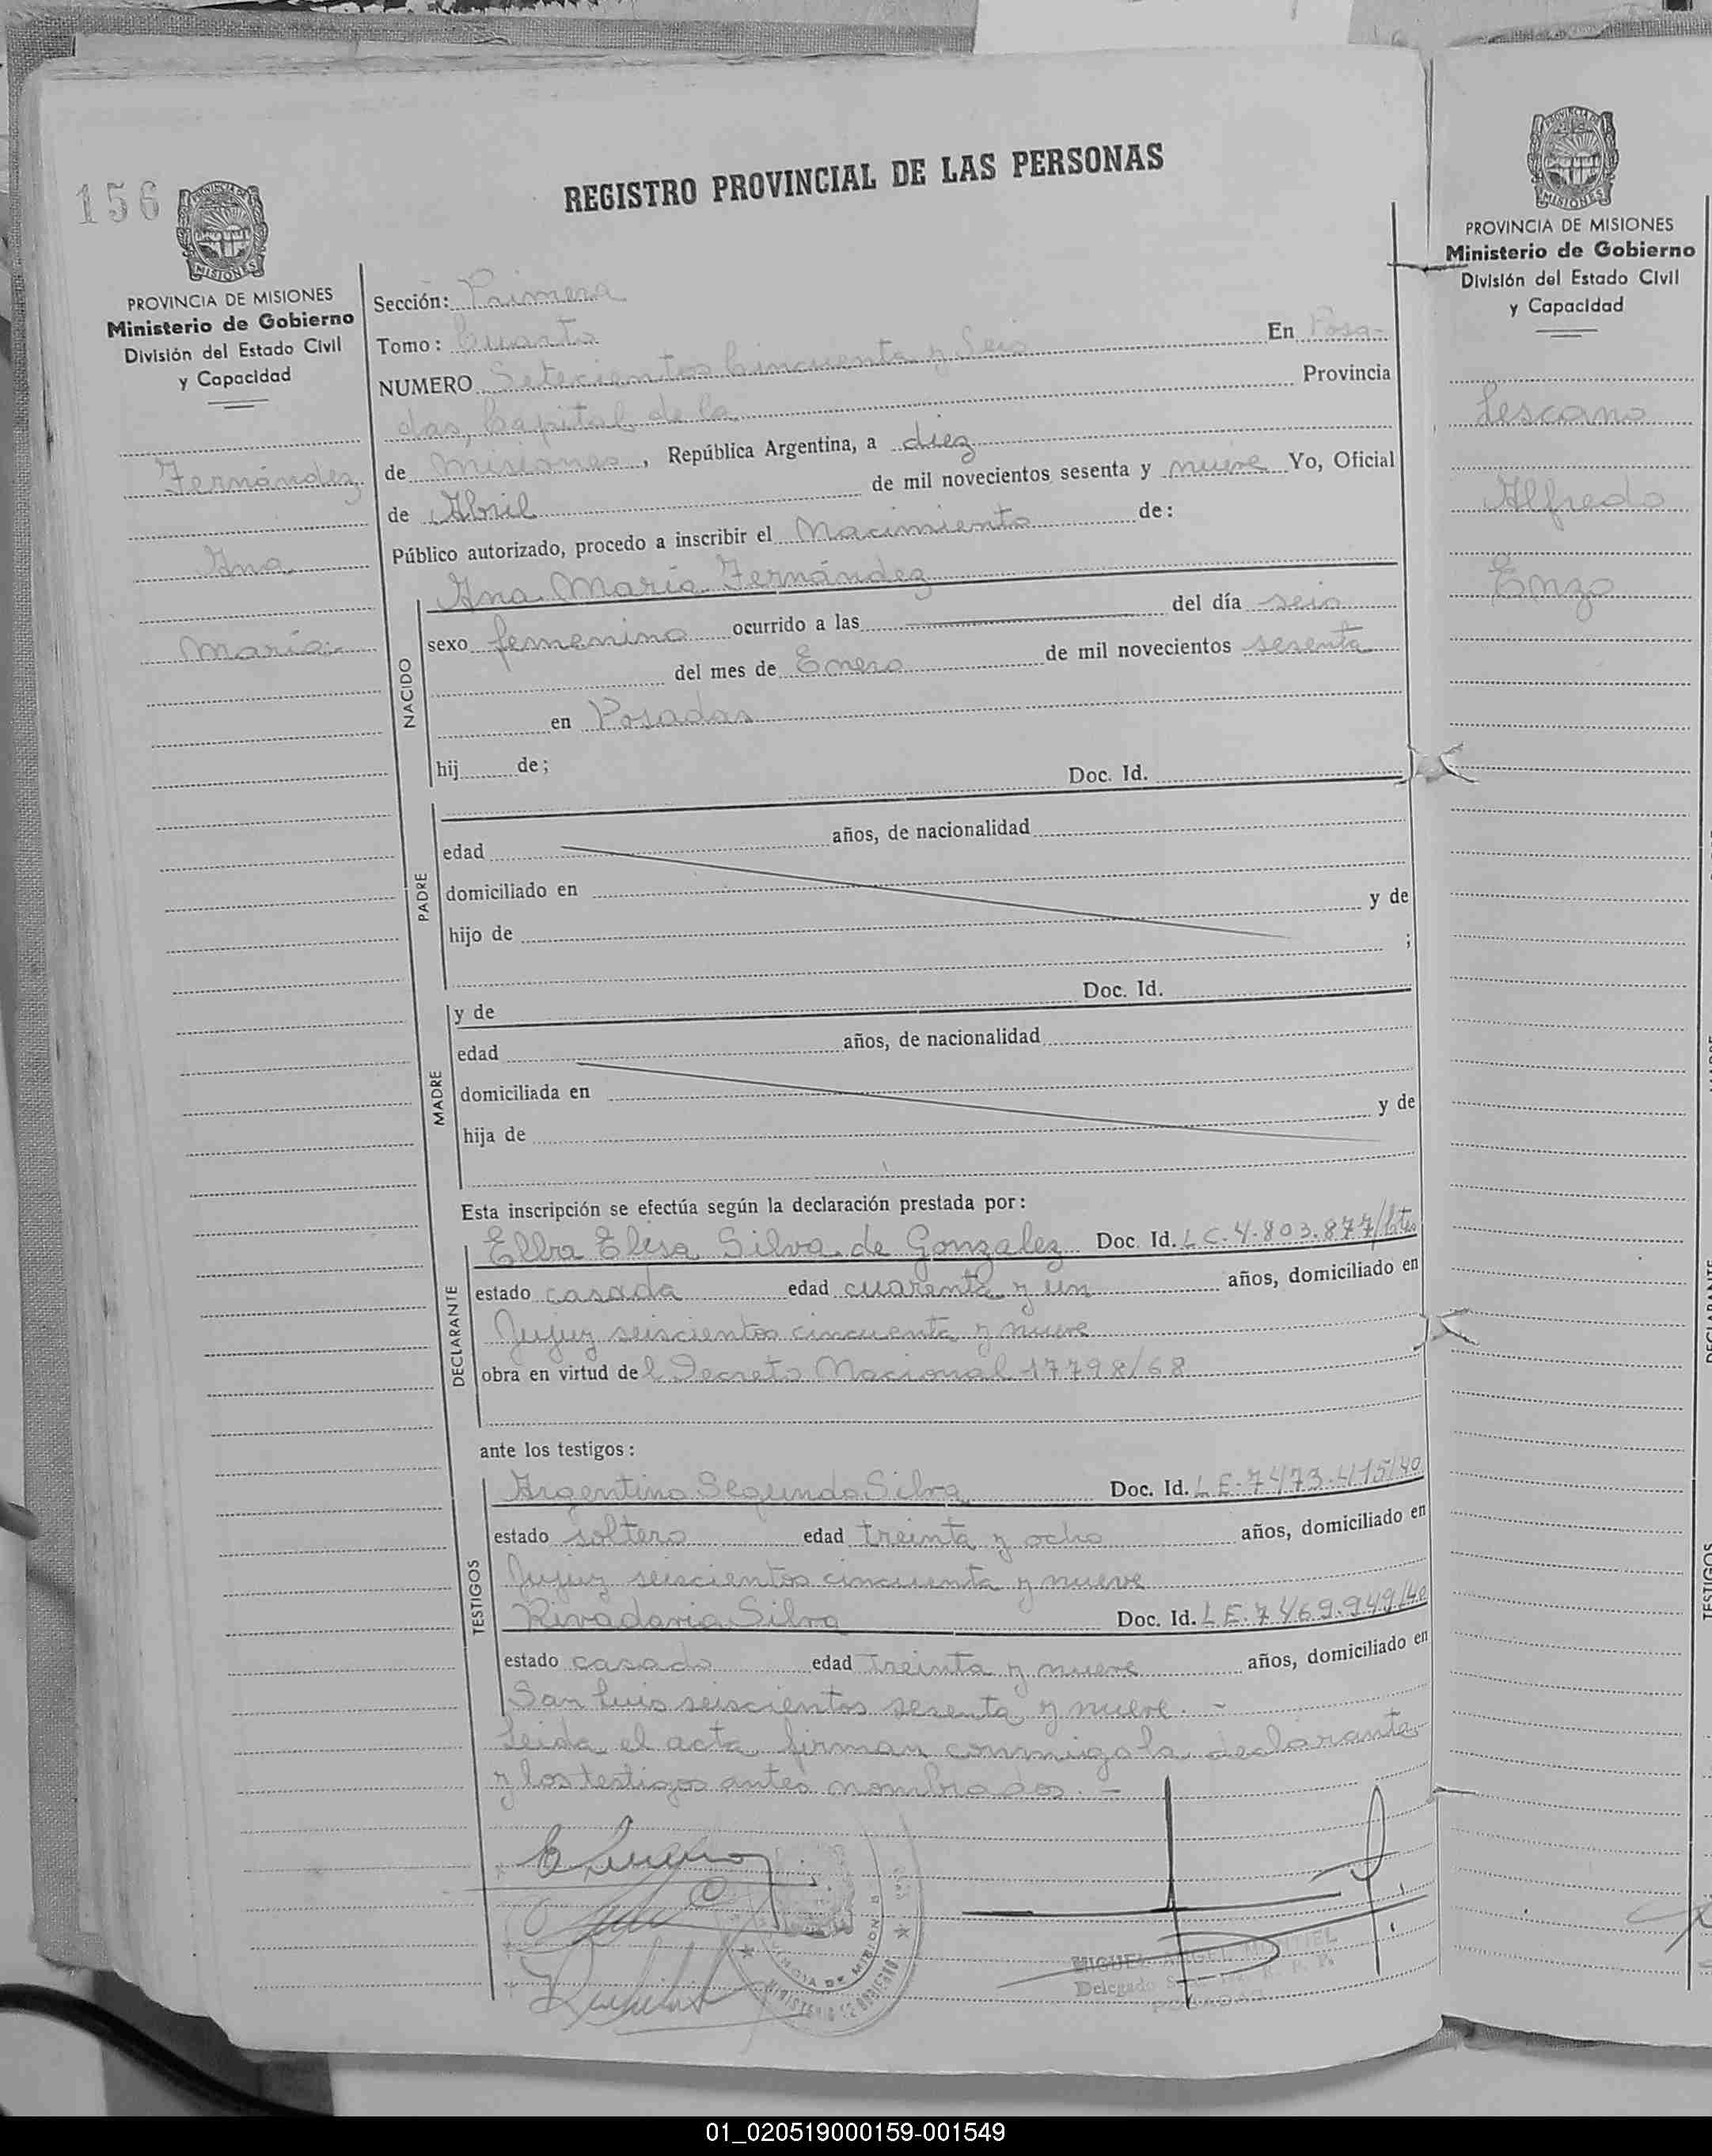 156
PROVINCIA DE MISIONES
Ministerio de Gobierno
División del Estado Civil
y Capacidad
Fernández
Ana
María.-
REGISTRO PROVINCIAL DE LAS PERSONAS
Sección: Primera
Tomo: Cuarto
NUMERO Setecientos Cincuenta y Seis En Posa-
das, Capital de la Provincia
de Misiones, República Argentina, a diez
de Abril de mil novecientos sesenta y nueve Yo, Oficial
Público autorizado, procedo a inscribir el Nacimiento de:
Ana María Fernández
NACIDO
sexo femenino ocurrido a las del día seis
del mes de Enero de mil novecientos sesenta
en Posadas
hij de;
PADRE
Doc. Id.
edad años, de nacionalidad
domiciliado en
hijo de y de
;
MADRE
y de Doc. Id.
edad años, de nacionalidad
domiciliada en
hija de y de
Esta inscripción se efectúa según la declaración prestada por:
DECLARANTE
Elba Elisa Silva de Gonzalez Doc. Id. LC. 4.803.877
estado casada edad cuarenta y un años, domiciliado en
Jujuy seiscientos cincuenta y nueve
obra en virtud del Decreto Nacional 17798/68
ante los testigos:
TESTIGOS
Argentino Segundo Silva Doc. Id. LE. 7473.415/40
estado soltero edad treinta y ocho años, domiciliado en
Jujuy seiscientos cincuenta y nueve
Rivadavia Silva Doc. Id. LE. 7469.949/40
estado casado edad treinta y nueve años, domiciliado en
San Luis seiscientos sesenta y nueve.-
Leida el acta, firman conmigo la declarante
y los testigos antes nombrados.-
MINISTERIO DE GOBIERNO
MIGUEL ANGEL MONTIEL
Delegado
POSADAS
PROVINCIA DE MISIONES
Ministerio de Gobierno
División del Estado Civil
y Capacidad
Lescano
Alfredo
Enzo
TESTIGOS
01_020519000159-001549